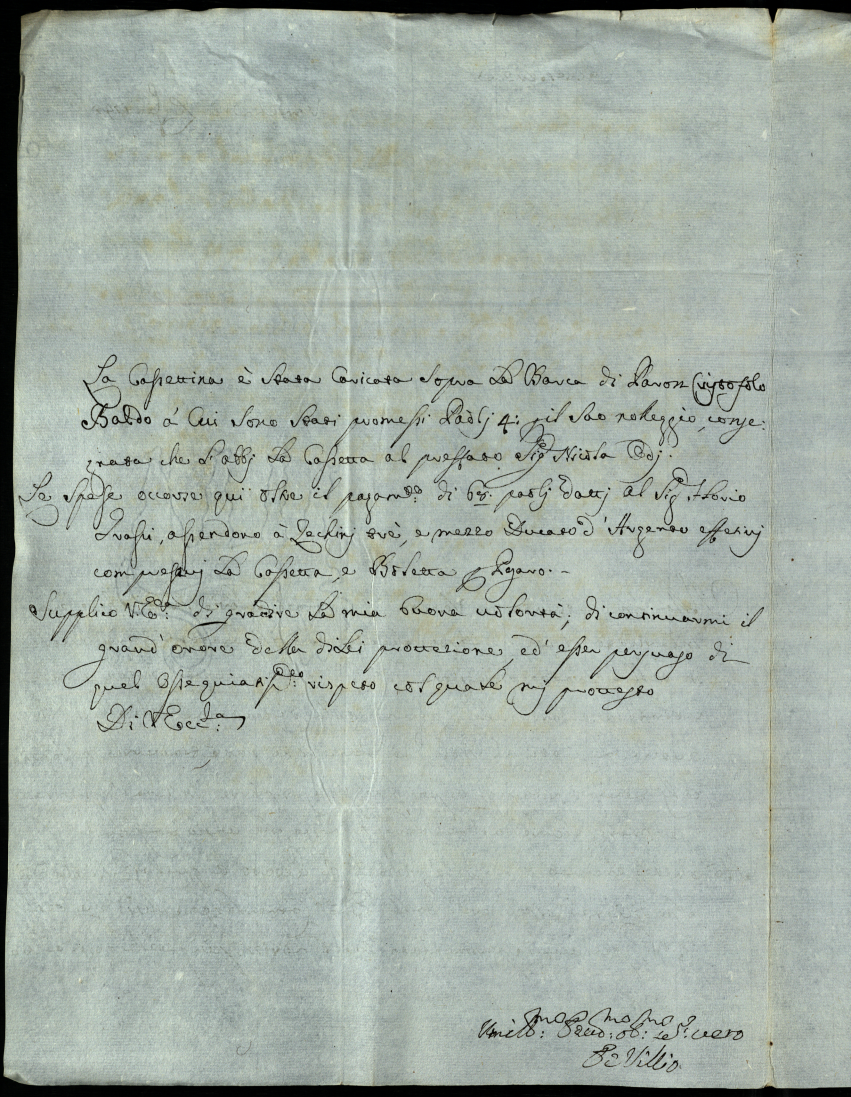 La Cassettina è stata caricata sopra la Barca di Paron Cristofolo
Baldo à cui sono stati promessi Paolj 4: p il suo noleggio, conse:
gnata che si abbj la Cassetta al preffato Sig.r Nicola
Le spese occorse qui oltre il pagam.to di 63 paolj dattj al Sig.r
Grassi, assendono à Zechinj trè, e mezzo Ducato d'Argento effetivj
compresivj la Cassetta, e Boletta p Pesaro.-
Supplico V.Ecc.a di gradire la mia buona volontà, di continuarmi il
grand'onore della di Lei prottezione, ed' esser persuaso di
quel ossequiatis.mo rispeto col quale mj protesto
Di V Ecc.za
Umil.mo Devo.mo ob.mo Se.r vero
De Villio